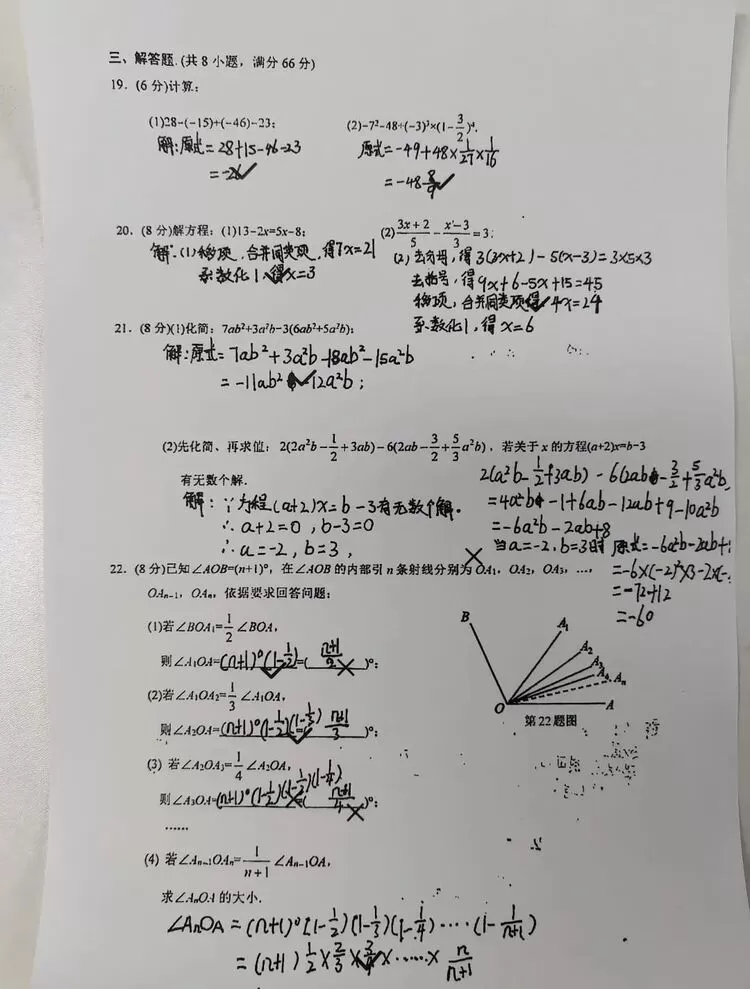 三、解答题.(共8小题，满分66分)
19．(6分)计算：
(1)28-(-15)+(-46)-23；
(2)-7²-48÷(-3)³×(1-3/2)⁴.
解:原式=28+15-46-23
=-26
原式=-49+48×1/27×1/16
=-48 8/9
20．(8分)解方程：(1)13-2x=5x-8；
(2)(3x+2)/5-(x-3)/3=3；
解:(1)移项,合并同类项,得7x=21
系数化1,得x=3
(2)去分母,得3(3x+2)-5(x-3)=3×5×3
去括号,得9x+6-5x+15=45
移项,合并同类项得4x=24
系数化1,得x=6
21．(8分)(1)化简：7ab²+3a²b-3(6ab²+5a²b)；
解:原式=7ab²+3a²b-18ab²-15a²b
=-11ab² 12a²b;
(2)先化简、再求值：2(2a²b-1/2+3ab)-6(2ab-3/2+5/3a²b)，若关于x的方程(a+2)x=b-3
有无数个解.
解:∵方程(a+2)x=b-3有无数个解.
∴a+2=0,b-3=0
∴a=-2,b=3,
2(a²b-1/2+3ab)-6(2ab-3/2+5/3a²b
=4a²b-1+6ab-12ab+9-10a²b
=-6a²b-2ab+8
当a=-2,b=3时 原式=-6a²b-2ab+
=-6×(-2)²×3-2×(-
=-72+12
=-60
22．(8分)已知∠AOB=(n+1)°，在∠AOB的内部引n条射线分别为OA₁，OA₂，OA₃，…，
OAₙ₋₁，OAₙ，依据要求回答问题：
(1)若∠BOA₁=1/2∠BOA，
则∠A₁OA=(n+1)°(1-1/2)=((n+1)/2)°；
(2)若∠A₁OA₂=1/3∠A₁OA，
则∠A₂OA=(n+1)°(1-1/2)(1-1/3)=((n+1)/3)°；
(3)若∠A₂OA₃=1/4∠A₂OA，
则∠A₃OA=(n+1)°(1-1/2)(1-1/3)(1-1/4)=((n+1)/4)°；
……
(4)若∠Aₙ₋₁OAₙ=1/(n+1)∠Aₙ₋₁OA，
求∠AₙOA的大小.
∠AₙOA=(n+1)°(1-1/2)(1-1/3)(1-1/4)····(1-1/(n+1))
=(n+1)1/2×2/3×3/4×……×n/(n+1)
B
A₁
A₂
A₃
A₄
Aₙ
O
A
第22题图